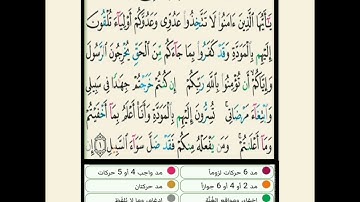 يَٰٓأَيُّهَا ٱلَّذِينَ ءَامَنُوا۟ لَا تَتَّخِذُوا۟ عَدُوِّى وَعَدُوَّكُمْ أَوْلِيَآءَ تُلْقُونَ
إِلَيْهِم بِٱلْمَوَدَّةِ وَقَدْ كَفَرُوا۟ بِمَا جَآءَكُم مِّنَ ٱلْحَقِّ يُخْرِجُونَ ٱلرَّسُولَ
وَإِيَّاكُمْ أَن تُؤْمِنُوا۟ بِٱللَّهِ رَبِّكُمْ إِن كُنتُمْ خَرَجْتُمْ جِهَٰدًا فِى سَبِيلِى
وَٱبْتِغَآءَ مَرْضَاتِى تُسِرُّونَ إِلَيْهِم بِٱلْمَوَدَّةِ وَأَنَا۠ أَعْلَمُ بِمَآ أَخْفَيْتُمْ
وَمَآ أَعْلَنتُمْ وَمَن يَفْعَلْهُ مِنكُمْ فَقَدْ ضَلَّ سَوَآءَ ٱلسَّبِيلِ ١
مد 6 حركات لزوماً مد واجب 4 أو 5 حركات
مد 2 أو 4 أو 6 جوازاً مد حركتان
إخفاء، ومواقع الغُنَّة إدغام، وما لا يُلفَظ